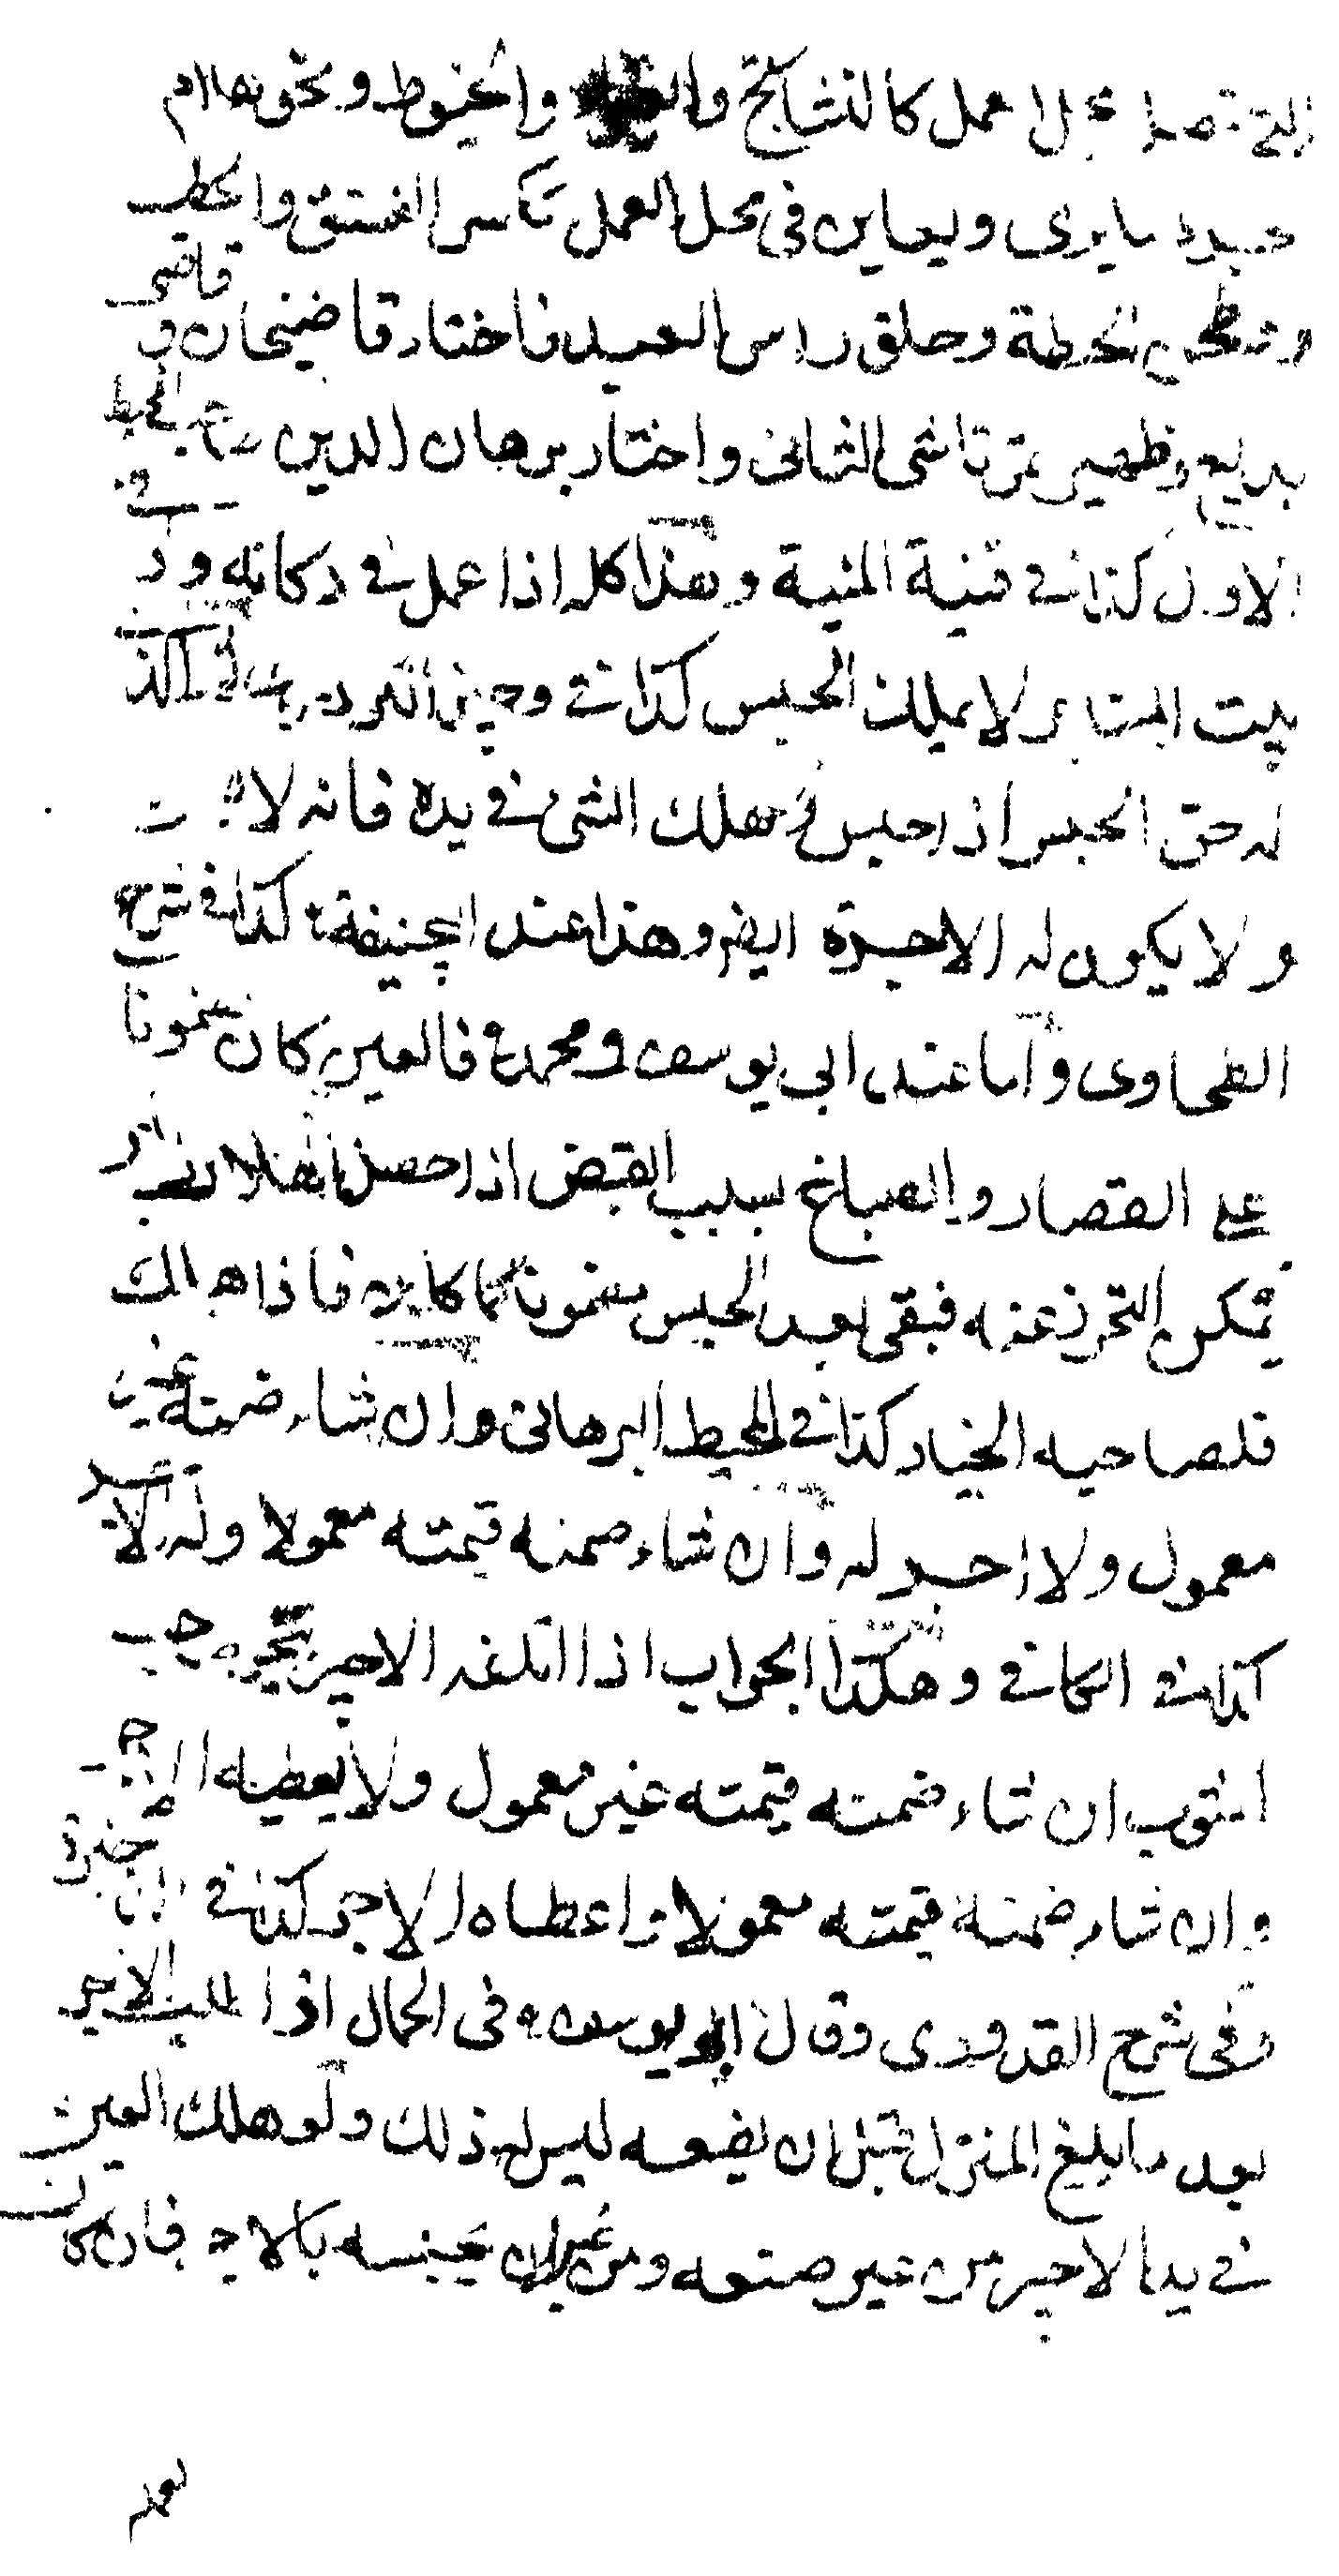 التي تتصل بمحل العمل كالنشاستج والغراء والخيوط ونحوها ام
مجرد ما يرى ويعاين في محل العمل ككسر الفستق والحطب
وطحن الحنطة وحلق راس العبد فاختار قاضيخان وقاضى
بديع وظهير تمرتاشى الثانى واختار برهان الدين صاحب المحيط
الاول كذا في قنية المنية وهذا كله اذا عمل في دكانه وفي
بيت المستاجر لا يملك الحبس كذا في وجيز الكردرى ثم الذ
له حق الحبس اذا حبس وهلك الشئ في يده فانه لا
ولا يكون له الاجرة ايضر وهذا عند ابيحنيفة كذا في شرح
الطحاوى واما عند ابي يوسف ومحمد فالعين كان مضمونا
على القصار والصباغ بسبب القبض اذا حصل الهلاك
يمكن التحرز عنه فبقى بعد الحبس مضمونا كما كان فاذا هلك
فلصاحبه الخيار كذا في المحيط البرهانى وان شاء ضمنه غير
معمول ولا اجر له وان شاء ضمنه قيمته معمولا وله الا
كذا في الكافي وهكذا الجواب اذا اتلفه الاجير يتخير صاحب
الثوب ان شاء ضمنه قيمته غير معمول ولا يعطيه الاجر
وان شاء ضمنه قيمته معمولا واعطاه الاجر كذا في
وفى شرح القدورى وقال ابو يوسف في الحمال اذا طلب الاجر
بعد ما بلغ المنزل قبل ان يضعه ليس له ذلك ولو هلك العين
في يد الاجير من غير صنعه ومن غير ان يحبسه بالاجر فان كان